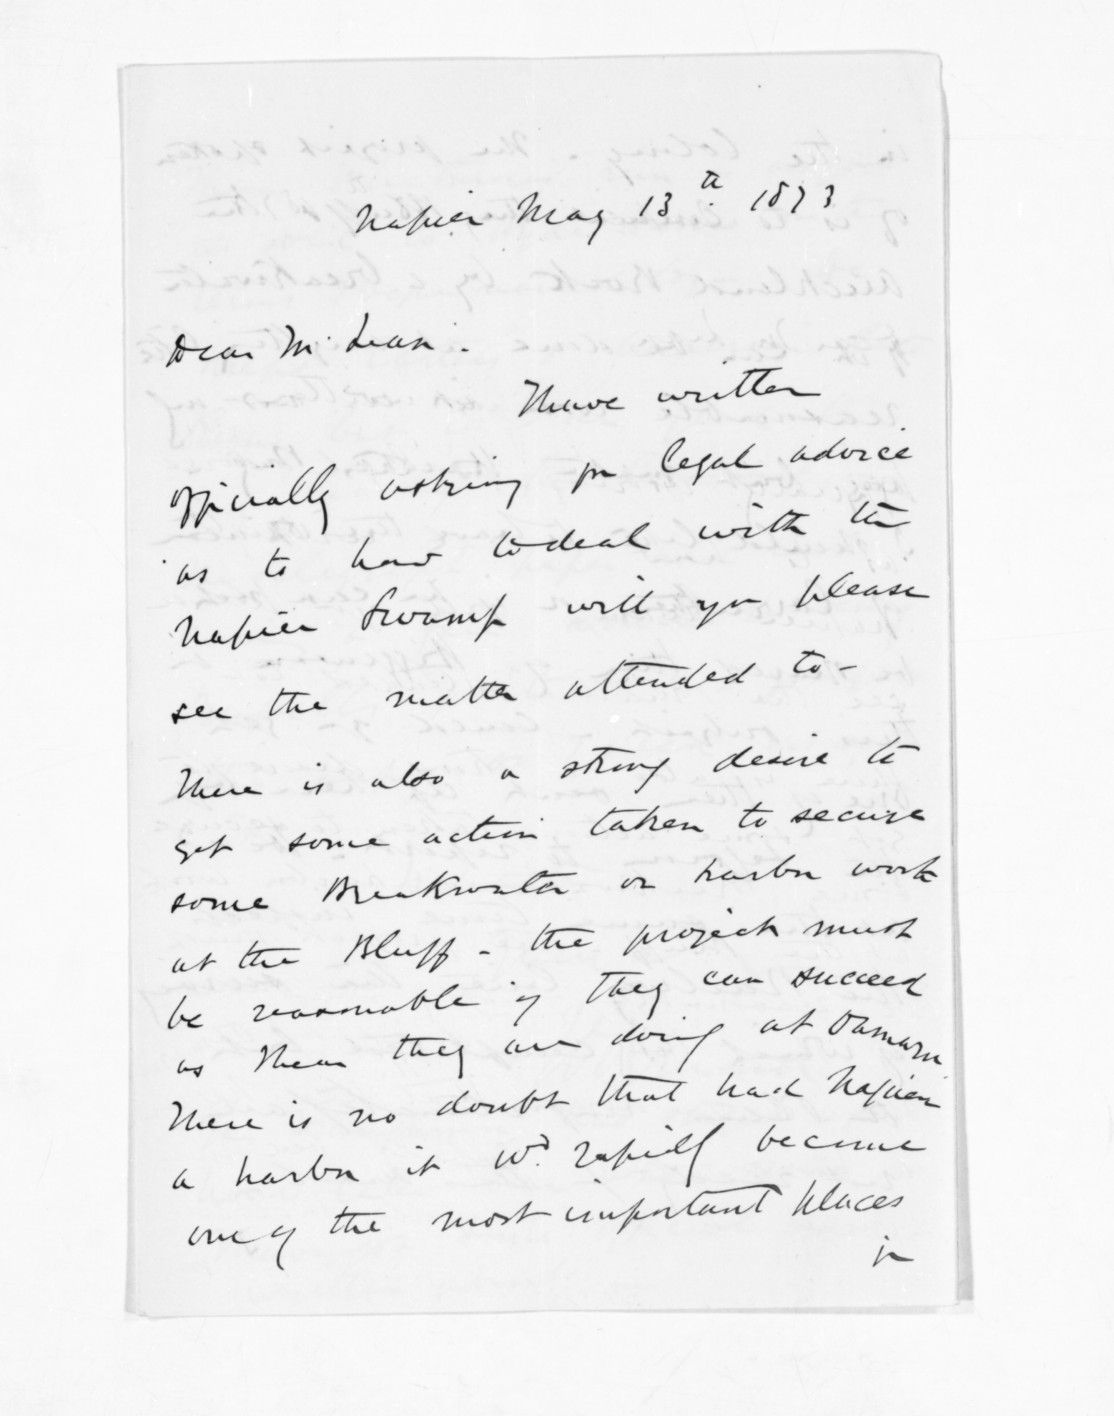 Napier May 13th 1873
Dear McLean.
I have written
officially asking for legal advice
as to how to deal with the
Napier Swamp will you please
see the matter attended to -
There is also a strong desire to
get some action taken to secure
some Breakwater or harbor work
at the Bluff - the project must
be reasonable if they can succeed
as I hear they are doing at Oamaru
There is no doubt that had Napier
a harbor it wd. rapidly become
one of the most important places
in